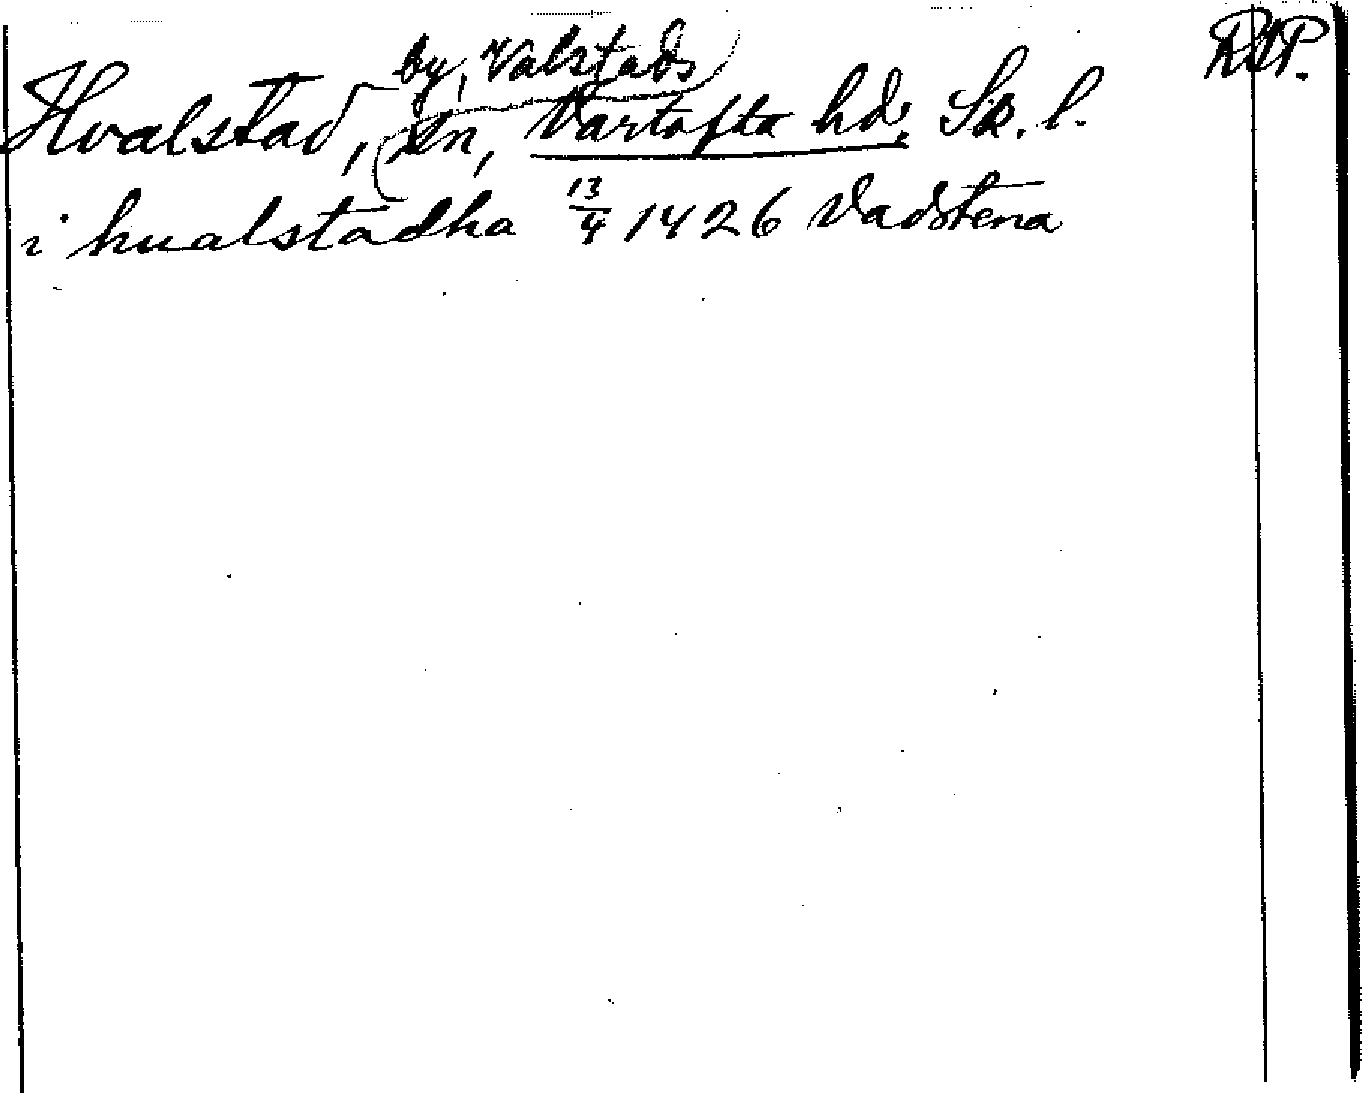 by, Valstads
Hvalstad, sn, Vartofta hd, Sk. l.
RAP.
i hualstadha 13/4 1426 Vadstena